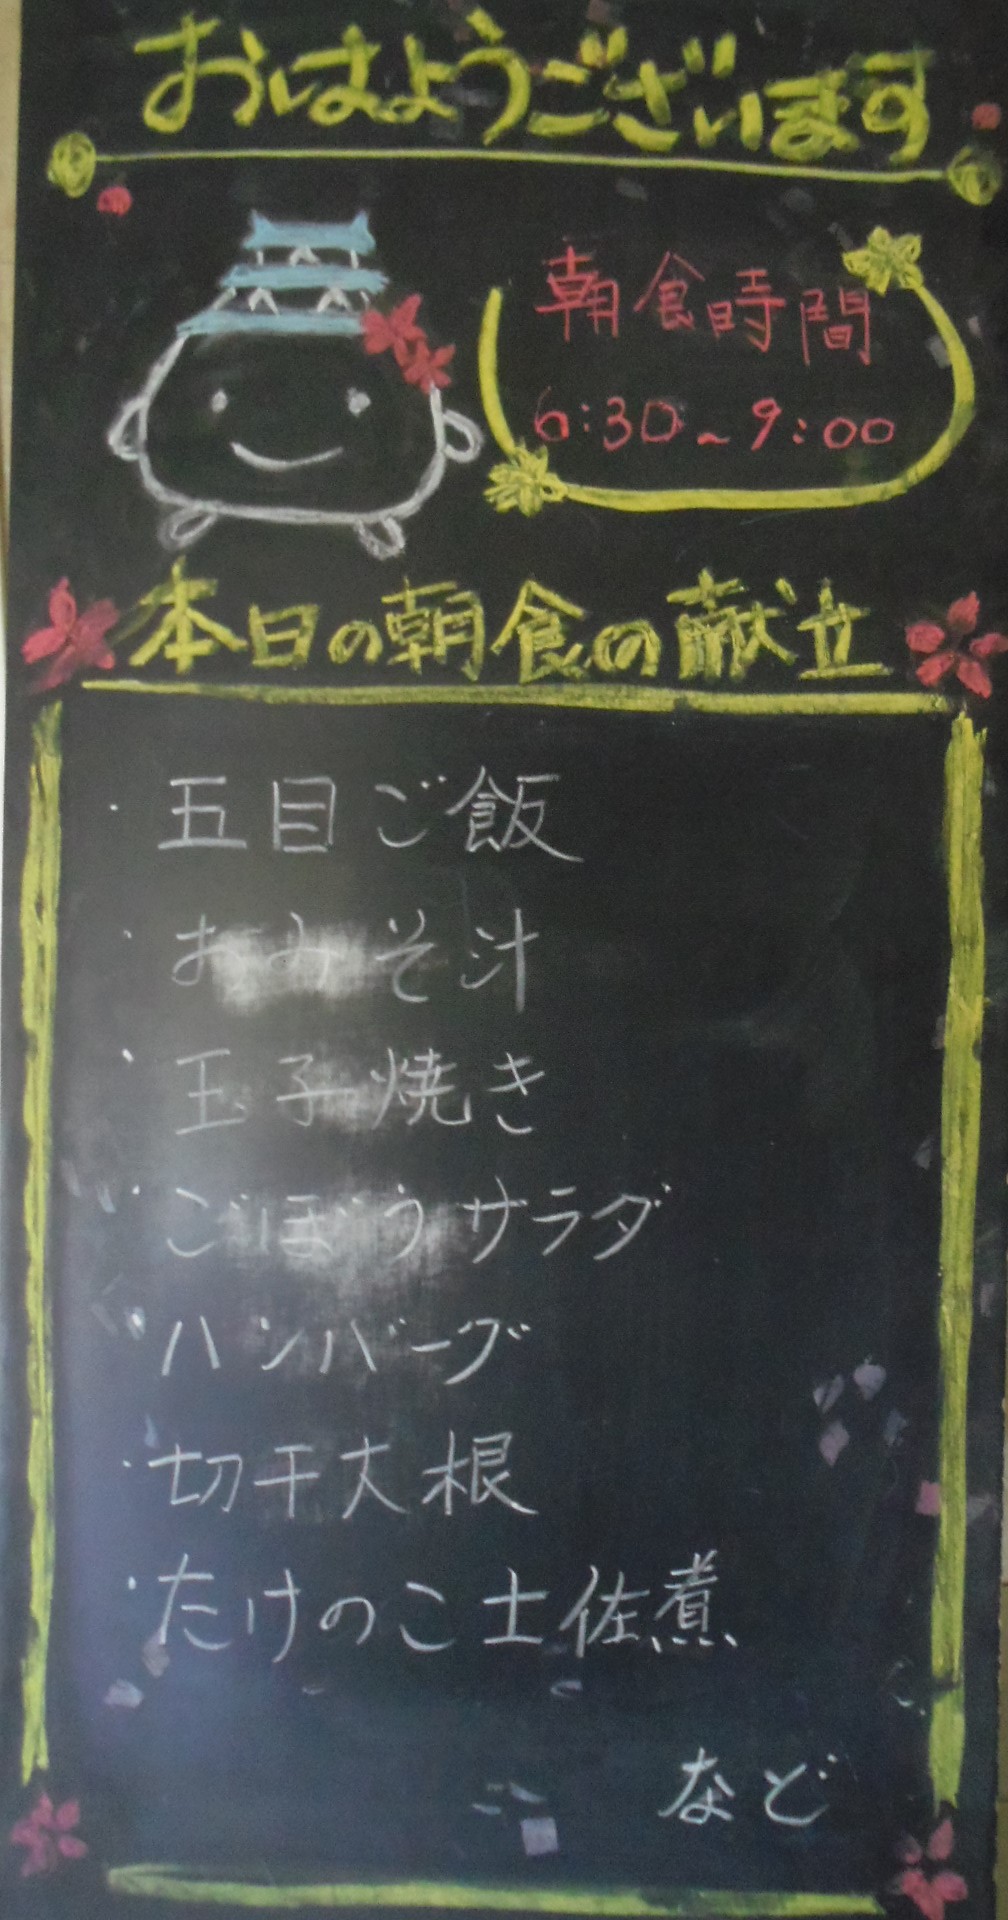 おはようございます
朝食時間
6:30~9:00
本日の朝食の献立
・五目ご飯
・おみそ汁
・玉子焼き
・ごぼうサラダ
・ハンバーグ
・切干大根
・たけのこ土佐煮
など